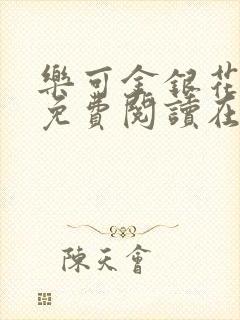 樂可金銀花
免費閱讀在
陳天會